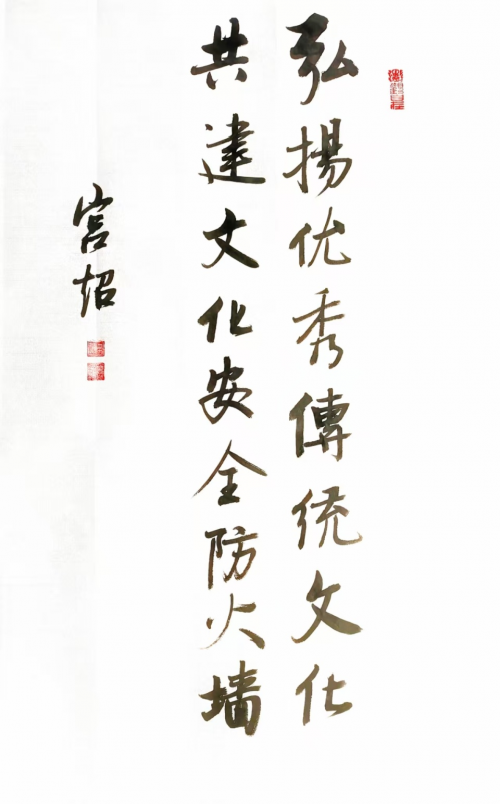 弘揚优秀傳统文化
共建文化安全防火墙
宫超